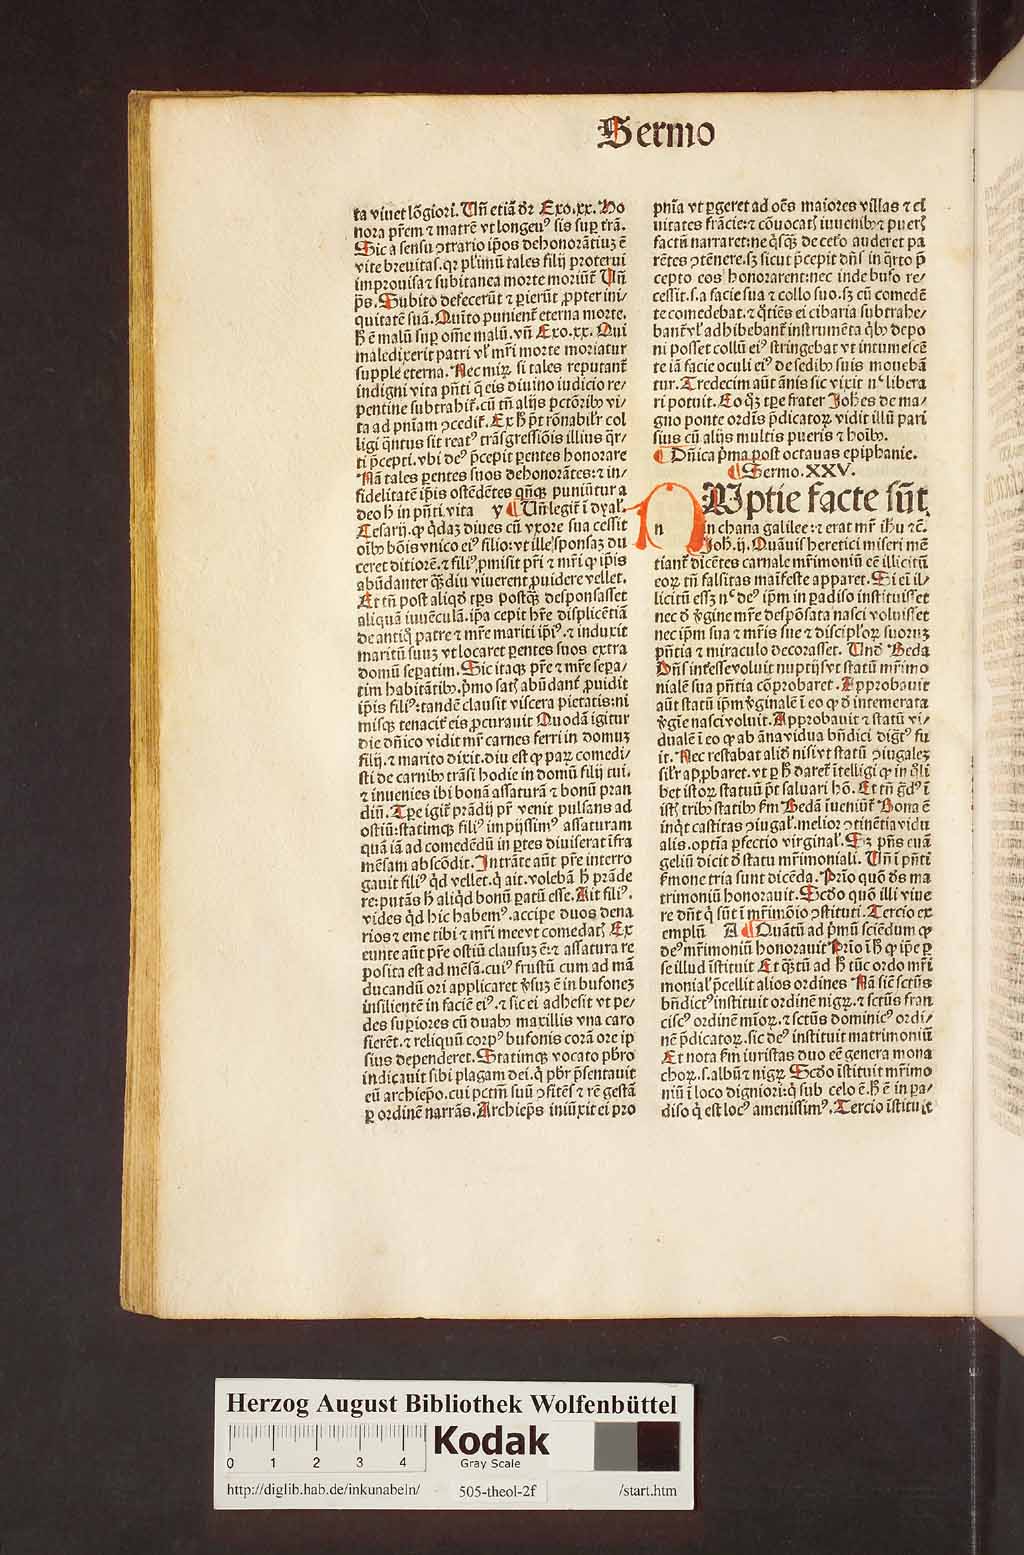 Sermo
ta viuet lōgiori. Vn̄ etiā dr̄ Exo.xx. Ho
nora pr̄em ⁊ matrē vt longeuꝰ sis suꝑ trā.
Sic a sensu ↄtrario ip̄os dehonorātiuꝫ ē
vite breuitas. qr pl'imū tales filij proterui
improuisa ⁊ subitanea morte moriūt̄ Vn̄
ps̄. Subito defecerūt ⁊ ꝑierūt ꝓpter ini⸗
quitatē suā. Quīto punient̄ eterna morte.
H̄ ē malū suꝑ om̄e malū. vn̄ Exo.xx. Qui
maledixerit patri vl' mr̄i morte moriatur
supple eterna. Nec miꝝ si tales reputant̄
indigni vita pn̄ti q̄ eis diuino iudicio re⸗
pentine subtrahit̄. cū tn̄ alijs pctōribꝰ vi⸗
ta ad pnīam ↄcedit̄. Ex h̄ pt̄ rōnabilr̄ col
ligi q̄ntus sit reatꝰ trāsgressiōis illius q̄r⸗
ti p̄cepti. vbi deꝰ p̄cepit ꝑentes honorare
Nā tales ꝑentes suos dehonorātes: ⁊ in⸗
fidelitatē ip̄is ostēdētes qn̄qꝫ puniūtur a
deo h̄ in pn̄ti vita y ¶ Vn̄ legit̄ ī dyal'.
Cesarij. ꝙ q̄daꝫ diues cū vxore sua cessit
oībꝰ bōis vnico eiꝰ filio: vt ille sponsaꝫ du
ceret ditiorē. ⁊ filiꝰ ꝓmisit pr̄i ⁊ mr̄i ꝙ ip̄is
abūdanter qꝫdiu viuerent ꝓuidere vellet.
Et tn̄ post aliqd̄ tp̄s postqꝫ desponsasset
aliquā iuuēculā. ip̄a cepit hr̄e displicētiā
de antiq̄ patre ⁊ mr̄e mariti ip̄iꝰ. ⁊ induxit
maritū suuꝫ vt locaret ꝑentes suos extra
domū seꝑatim. Sic itaqꝫ pr̄e ⁊ mr̄e seꝑa⸗
tim habitātibꝰ. p̄mo satꝭ abūdant̄ ꝓuidit
ip̄is filiꝰ: tandē clausit viscera pietatis: ni
misqꝫ tenacit̄ eis ꝓcurauit Quodā igitur
die dn̄ico vidit mr̄ carnes ferri in domuꝫ
filij. ⁊ marito dixit. diu est ꝙ paꝝ comedi⸗
sti de carnibꝰ trāsi hodie in domū filij tui.
⁊ inuenies ibi bonā assaturā ⁊ bonū pran
diū. Tꝑe igit̄ prādij pr̄ venit pulsans ad
ostiū: statimqꝫ filiꝰ impijssimꝰ assaturam
quā iā ad comedēdū in ꝑtes diuiserat īfra
mēsam abscōdit. Intrāte aūt pr̄e interro
gauit filiꝰ qd̄ vellet. q̄ ait. volebā h̄ prāde
re: putās h̄ aliqd̄ bonū ꝑatū esse. Ait filiꝰ.
vides qd̄ hic habemꝰ. accipe duos dena
rios ⁊ eme tibi ⁊ mr̄i mee vt comedatꝭ Ex
eunte aūt pr̄e ostiū clausuꝫ ē: ⁊ assatura re
posita est ad mēsā. cuiꝰ frustū cum ad mā
ducandū ori applicaret v̄suꝫ ē in bufoneꝫ
insilientē in faciē eiꝰ. ⁊ sic ei adhesit vt pe⸗
des suꝑiores cū duabꝰ maxillis vna caro
fierēt. ⁊ reliquū corpꝰ bufonis corā ore ip
sius dependeret. Statimqꝫ vocato pb̄ro
indicauit sibi plagam dei. q̄ pb̄r p̄sentauit
eū archiep̄o. cui pctm̄ suū ↄfitēs ⁊ rē gestā
ꝑ ordinē narrās. Archiep̄s iniūxit ei pro
pnīa vt ꝑgeret ad oēs maiores villas ⁊ ci
uitates frācie: ⁊ cōuocatꝭ iuuenibꝰ ⁊ puerꝭ
factū narraret: ne q̄sqꝫ de cet̄o auderet pa
rētes ↄtēnere. sꝫ sicut p̄cepit dn̄s in q̄rto p̄
cepto eos honorarent: nec inde bufo re⸗
cessit .s. a facie sua ⁊ collo suo. sꝫ cū comedē
te comedebat. ⁊ q̄tiēs ei cibaria subtrahe⸗
bant̄ vl' adhibebant̄ instrumēta qbꝰ depo
ni posset collū eiꝰ stringebat vt intumescē
te iā facie oculi eiꝰ de sedibꝰ suis mouebā
tur. Tredecim aūt ānis sic vixit nᶜ libera
ri potuit. Eo qꝫ tꝑe frater Joh̄es de ma⸗
gno ponte ordīs p̄dicatoꝝ vidit illū pari
sius cū alijs multis pueris ⁊ hoībꝰ.
¶ Dn̄ica p̄ma post octauas epiphanie.
¶ Sermo.XXV.
NUptie facte sūt
in chana galilee: ⁊ erat mr̄ ih̄u ⁊c̄.
Joh̄.ij. Quāuis heretici miseri mē
tiant̄ dicētes carnale mr̄imoniū eē illicitū
eoꝝ tn̄ falsitas maīfeste apparet. Si eī il⸗
licitū essꝫ nᶜ deꝰ ip̄m in ꝑadiso instituisset
nec d̄ v̄gine mr̄e despōsata nasci voluisset
nec ip̄m sua ⁊ mr̄is sue ⁊ discipl'oꝝ suoruꝫ
pn̄tia ⁊ miraculo decorasset. Vnd̄ Beda
Dn̄s intesse voluit nuptijs vt statū mr̄imo
nialē sua pn̄tia cōprobaret. Approbauit
aūt statū ip̄m v̄ginalē ī eo ꝙ d̄ intemerata
v̄gīe nasci voluit. Approbauit ⁊ statū vi⸗
dualē ī eo ꝙ ab āna vidua bn̄dici digtꝰ fu
it. Nec restabat aliō nisi vt statū ↄiugaleꝫ
sil'r apꝓbaret. vt ꝑ h̄ daret̄ ītelligi ꝙ in q̄li
bet istoꝝ statuū pt̄ saluari hō. Et tn̄ gd̄ꝰ ī
istꝭ tribꝰ statibꝰ fm̄ Bedā īueniūt̄ Bona ē
inqt̄ castitas ↄiugal'. melior ↄtinētia vidu
alis. optīa ꝑfectio virginal'. Sꝫ pn̄s euā
geliū dicit d̄ statu mr̄imoniali. Vn̄ ī pn̄ti
f̄mone tria sunt dicēda. Prīo quō ds̄ ma
trimoniū honorauit. Scd̄o quō illi viue
re dn̄t q̄ sūt ī mr̄imōio ↄstituti. Tercio ex
emplū A ¶ Quātū ad p̄mū sciēdum ꝙ
deꝰ mr̄imoniū honorauit Prīo ī h̄ ꝙ ip̄e ꝑ
se illud īstituit Et qꝫtū ad h̄ tūc ordo mr̄i
monial' p̄cellit alios ordines Nā sic sctūs
bn̄dictꝰ instituit ordinē nigꝝ. ⁊ sctūs fran
ciscꝰ ordinē mīoꝝ. ⁊ sctūs dominicꝰ ordi⸗
nē p̄dicatoꝝ. sic deꝰ instituit matrimoniū
Et nota fm̄ iuristas duo eē genera mona
choꝝ .s. albū ⁊ nigꝝ Scd̄o īstituit mr̄imo
niū ī loco digniori: q̄ sub celo ē. h̄ ē in pa⸗
diso q̄ est locꝰ amenissimꝰ. Tercio īstituit
Herzog August Bibliothek Wolfenbüttel
0 1 2 3 4
Kodak
Gray Scale
http://diglib.hab.de/inkunabeln/ 505-theol-2f /start.htm